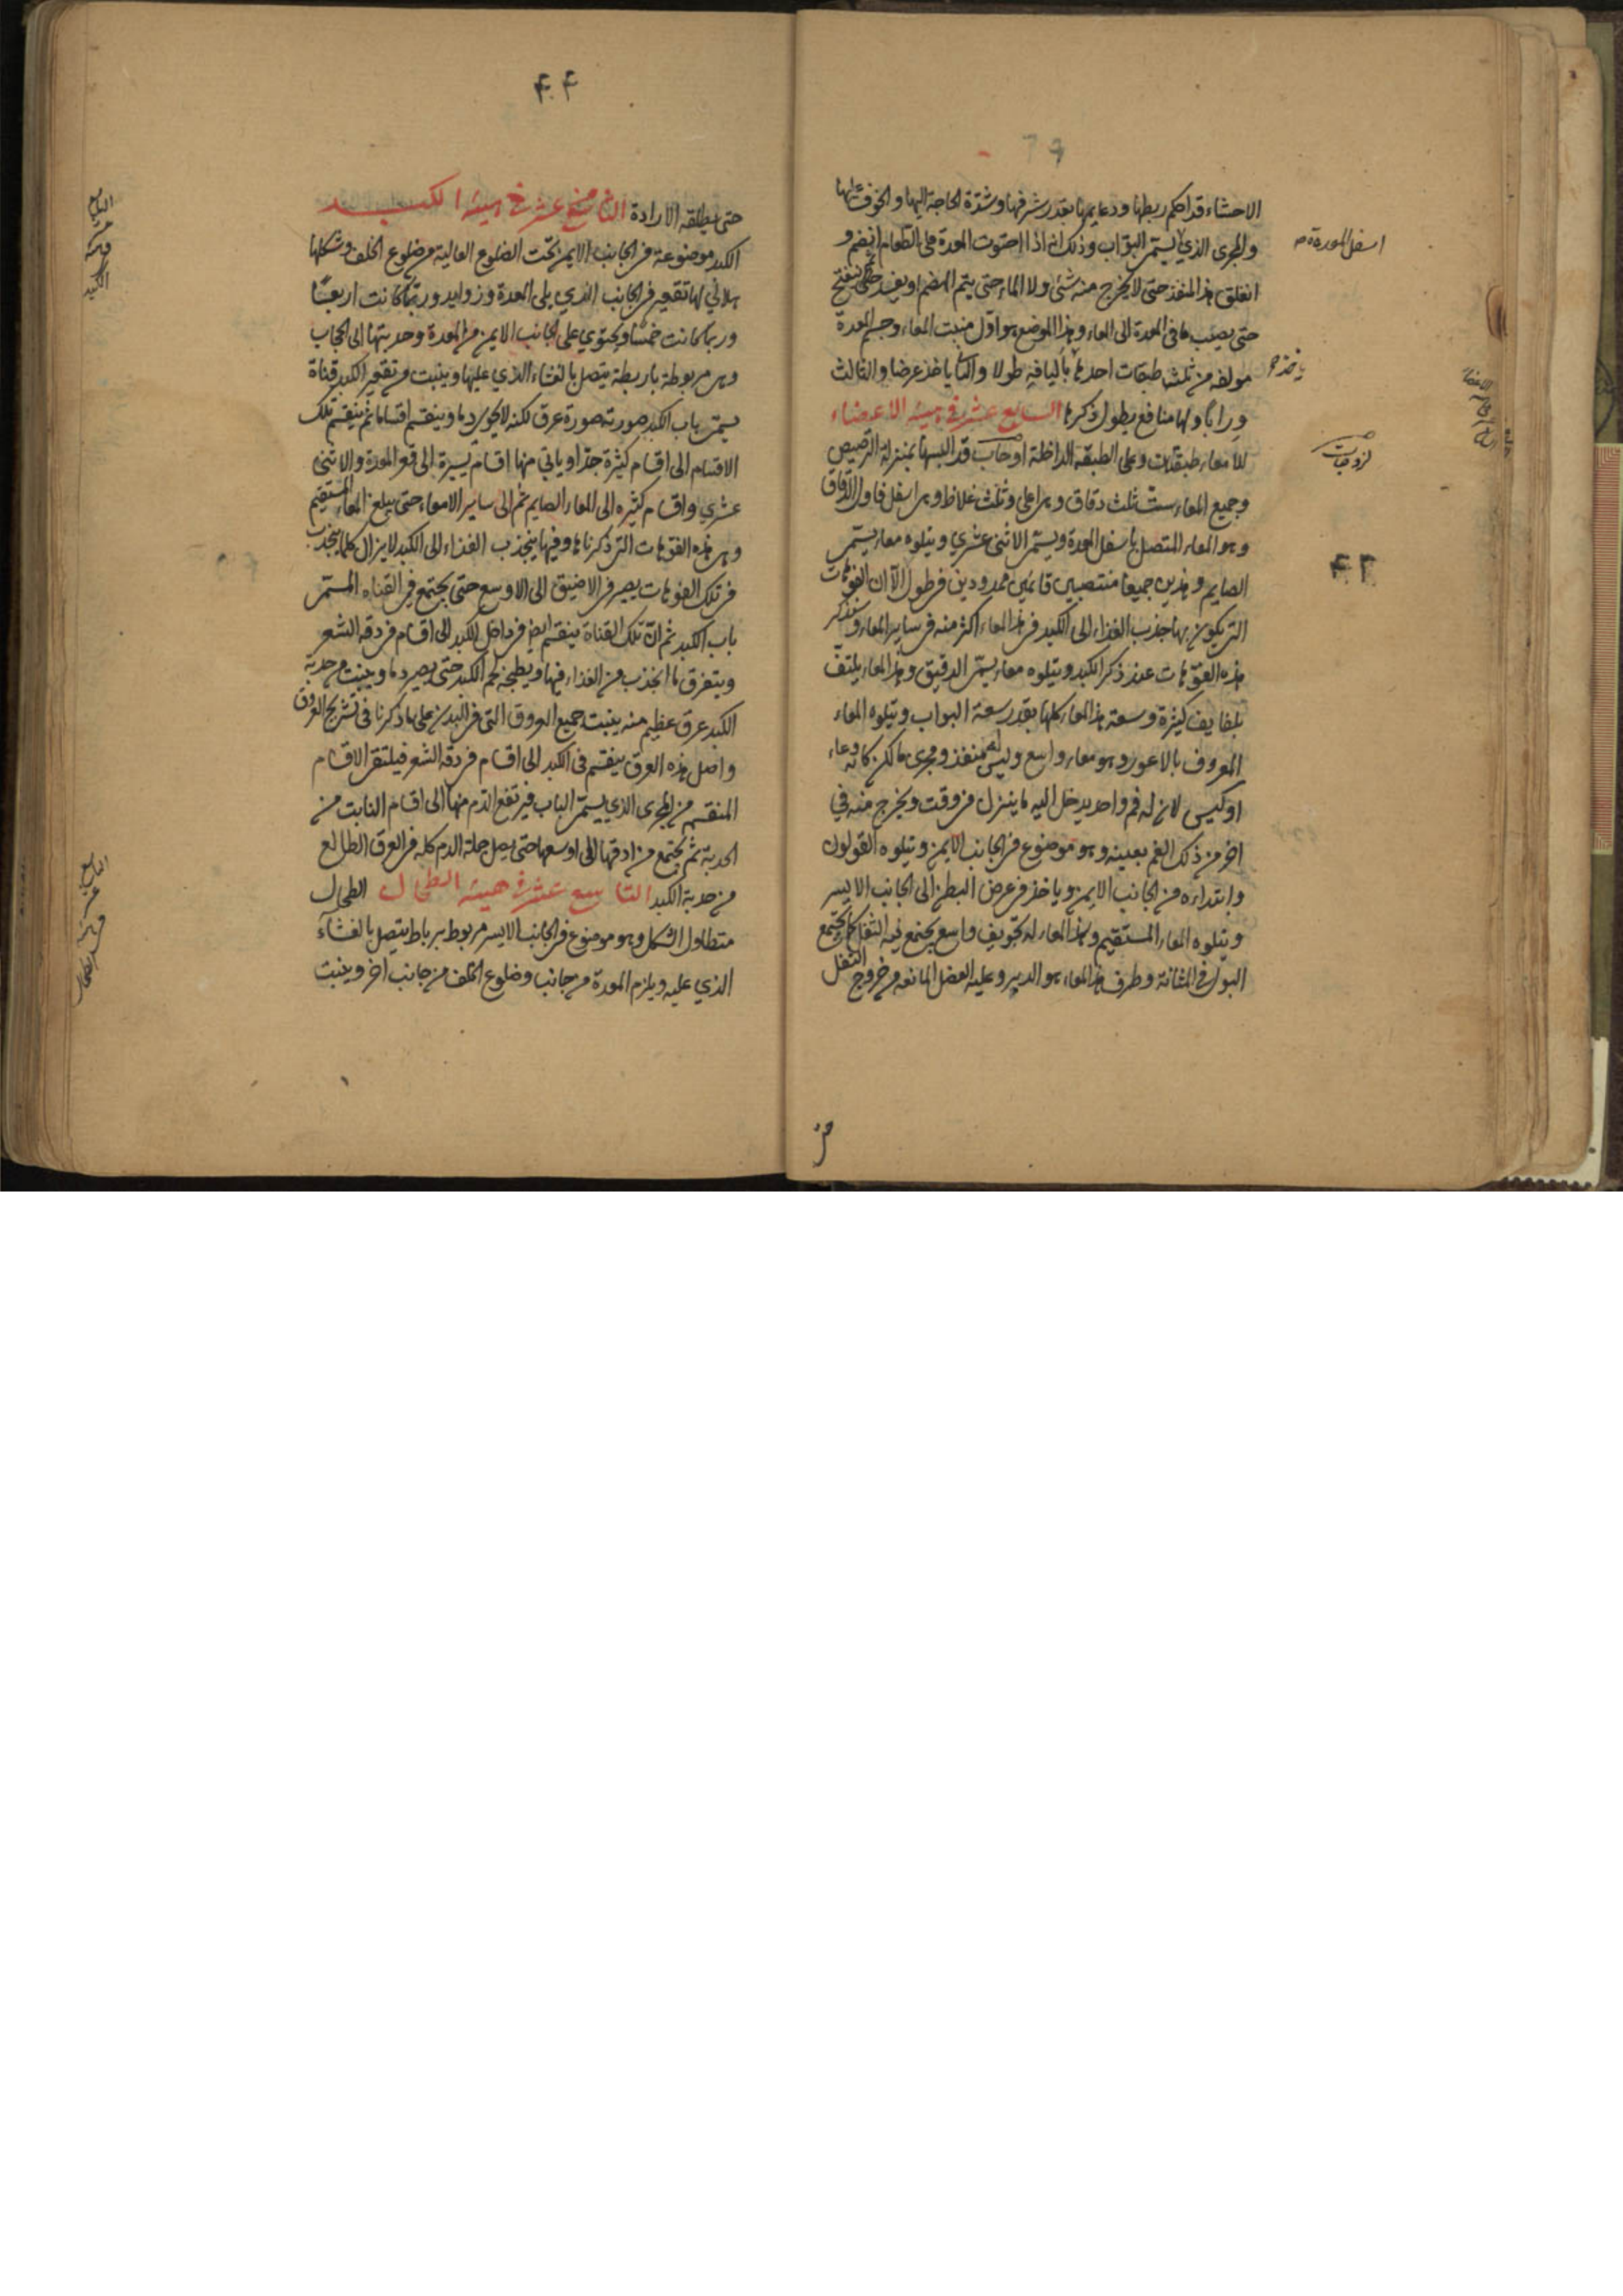 الاحشاء قد احكم ربطها ودعايمها بقدر شرفها وشدة الحاجة اليها والخوف عليها
والمجرى الذي يسمى البواب وذلك انه اذا احتوت المعدة على الطعام انضم و
اسفل المعدة
انغلق هذا المنفذ حتى لا يخرج منه شئ ولا الماء حتى يتم الهضم او يفسد ثم ينفتح
حتى يصب ما في المعدة الى المعاء وهذا الموضع هو اول منبت المعاء وجسم المعدة
مولفه من ثلث طبقات احديها باليافه طولا والثانى ياخذ عرضا والثالث
ياخذ
ورابا ولها منافع يطول ذكرها السابع عشر في هيئه الامعاء
للامعاء طبقتان وعلى الطبقه الداخلة لزوجات قد البسها بمنزلة الترصيص
لزوجات
وجميع المعاء ست ثلث دقاق وهي اعلى وثلث غلاظ وهي اسفل فاول الدقاق
وهو المعاء المتصل باسفل المعدة ويسمى الاثنى عشري ويتلوه معاء يسمى
الصايم وهذين جميعا منتصبين قائمين ممدودين في طول الان الفوهات
التي يكون بها جذب الغذاء الى الكبد في هذا المعاء اكثر منه في ساير المعاء وسنذكر
هذه الفوهات عند ذكر الكبد ويتلوه معاء يسمى الدقيق وهذا المعاء يلتف
بلفايف كثيرة وسعة هذا المعاء كلها بقدر سعة البواب ويتلوه المعاء
المعروف بالاعور وهو معاء واسع وليس له منفذ ومجرى لكن كانه وعاء
او كيس لان له فم واحد يدخل اليه ما ينزل من وقت ويخرج منه في
اخر من ذلك الفم بعينه وهو موضوع في الجانب الايمن ويتلوه القولون
وابتداءه من الجانب الايمن وياخذ في عرض البطن الى الجانب الايسر
ويتلوه المعاء المستقيم وهذا المعاء له تجويف واسع يجتمع فيه الثفل كما يجتمع
البول في المثانة وطرف هذا المعاء هو الدبر وعليه العضل المانعه من خروج الثفل
حتى يطلقه الارادة الثامن عشر في هيئه الكبد
الكبد موضوعة في الجانب الايمن تحت الضلوع العالية من ضلوع الخلف وشكلها
هلالي لها تقعير في الجانب الذي يلى المعدة وزوايد وربما كانت اربعا
وربما كانت خمسا ويحتوي على الجانب الايمن من المعدة وحدبتها الى الحجاب
وهي مربوطة باربطة يتصل بالغشاء الذي عليها وينبت من تقعير الكبد قناة
يسمى باب الكبد صورته صورة عرق لكنه لا يحوي دما وينقسم اقساما ثم ينقسم تلك
الاقسام الى اقسام كثيرة جدا وياتي منها اقسام يسيرة الى قعر المعدة والاثنى
عشري واقسام كثيره الى المعاء الصايم ثم الى ساير الامعاء حتى يبلغ المعاء المستقيم
وهي هذه الفوهات التي ذكرناها وفيها ينجذب الغذاء الى الكبد لا يزال كلما ينجذب
في تلك الفوهات يصير في الاضيق الى الاوسع حتى يجتمع في القناه المسمى
باب الكبد ثم ان تلك القناة ينقسم ايض في داخل الكبد الى اقسام في دقه الشعر
ويتفرق ما انجذب من الغذاء فيها ويطبخه لحم الكبد حتى يصير دما وينبت من حدبة
الكبد عرق عظيم منه ينبت جميع العروق التي في البدن على ما ذكرنا في تشريح العروق
واصل هذه العرق ينقسم في الكبد الى اقسام في دقه الشعر فيلتقي الاقسام
المنقسم من المجرى الذي يسمى الباب فيرتفع الدم منها الى اقسام النابت من
الحدبة ثم يجتمع من ادقها الى اوسعها حتى يصل جملة الدم كله في العرق الطالع
من حدبة الكبد التاسع عشر في هيئه الطحال الطحال
متطاول الشكل وهو موضوع في الجانب الايسر مربوط برباط يتصل بالغشاء
الذي عليه ويلزم المعدة من جانب وضلوع الخلف من جانب اخر وينبت